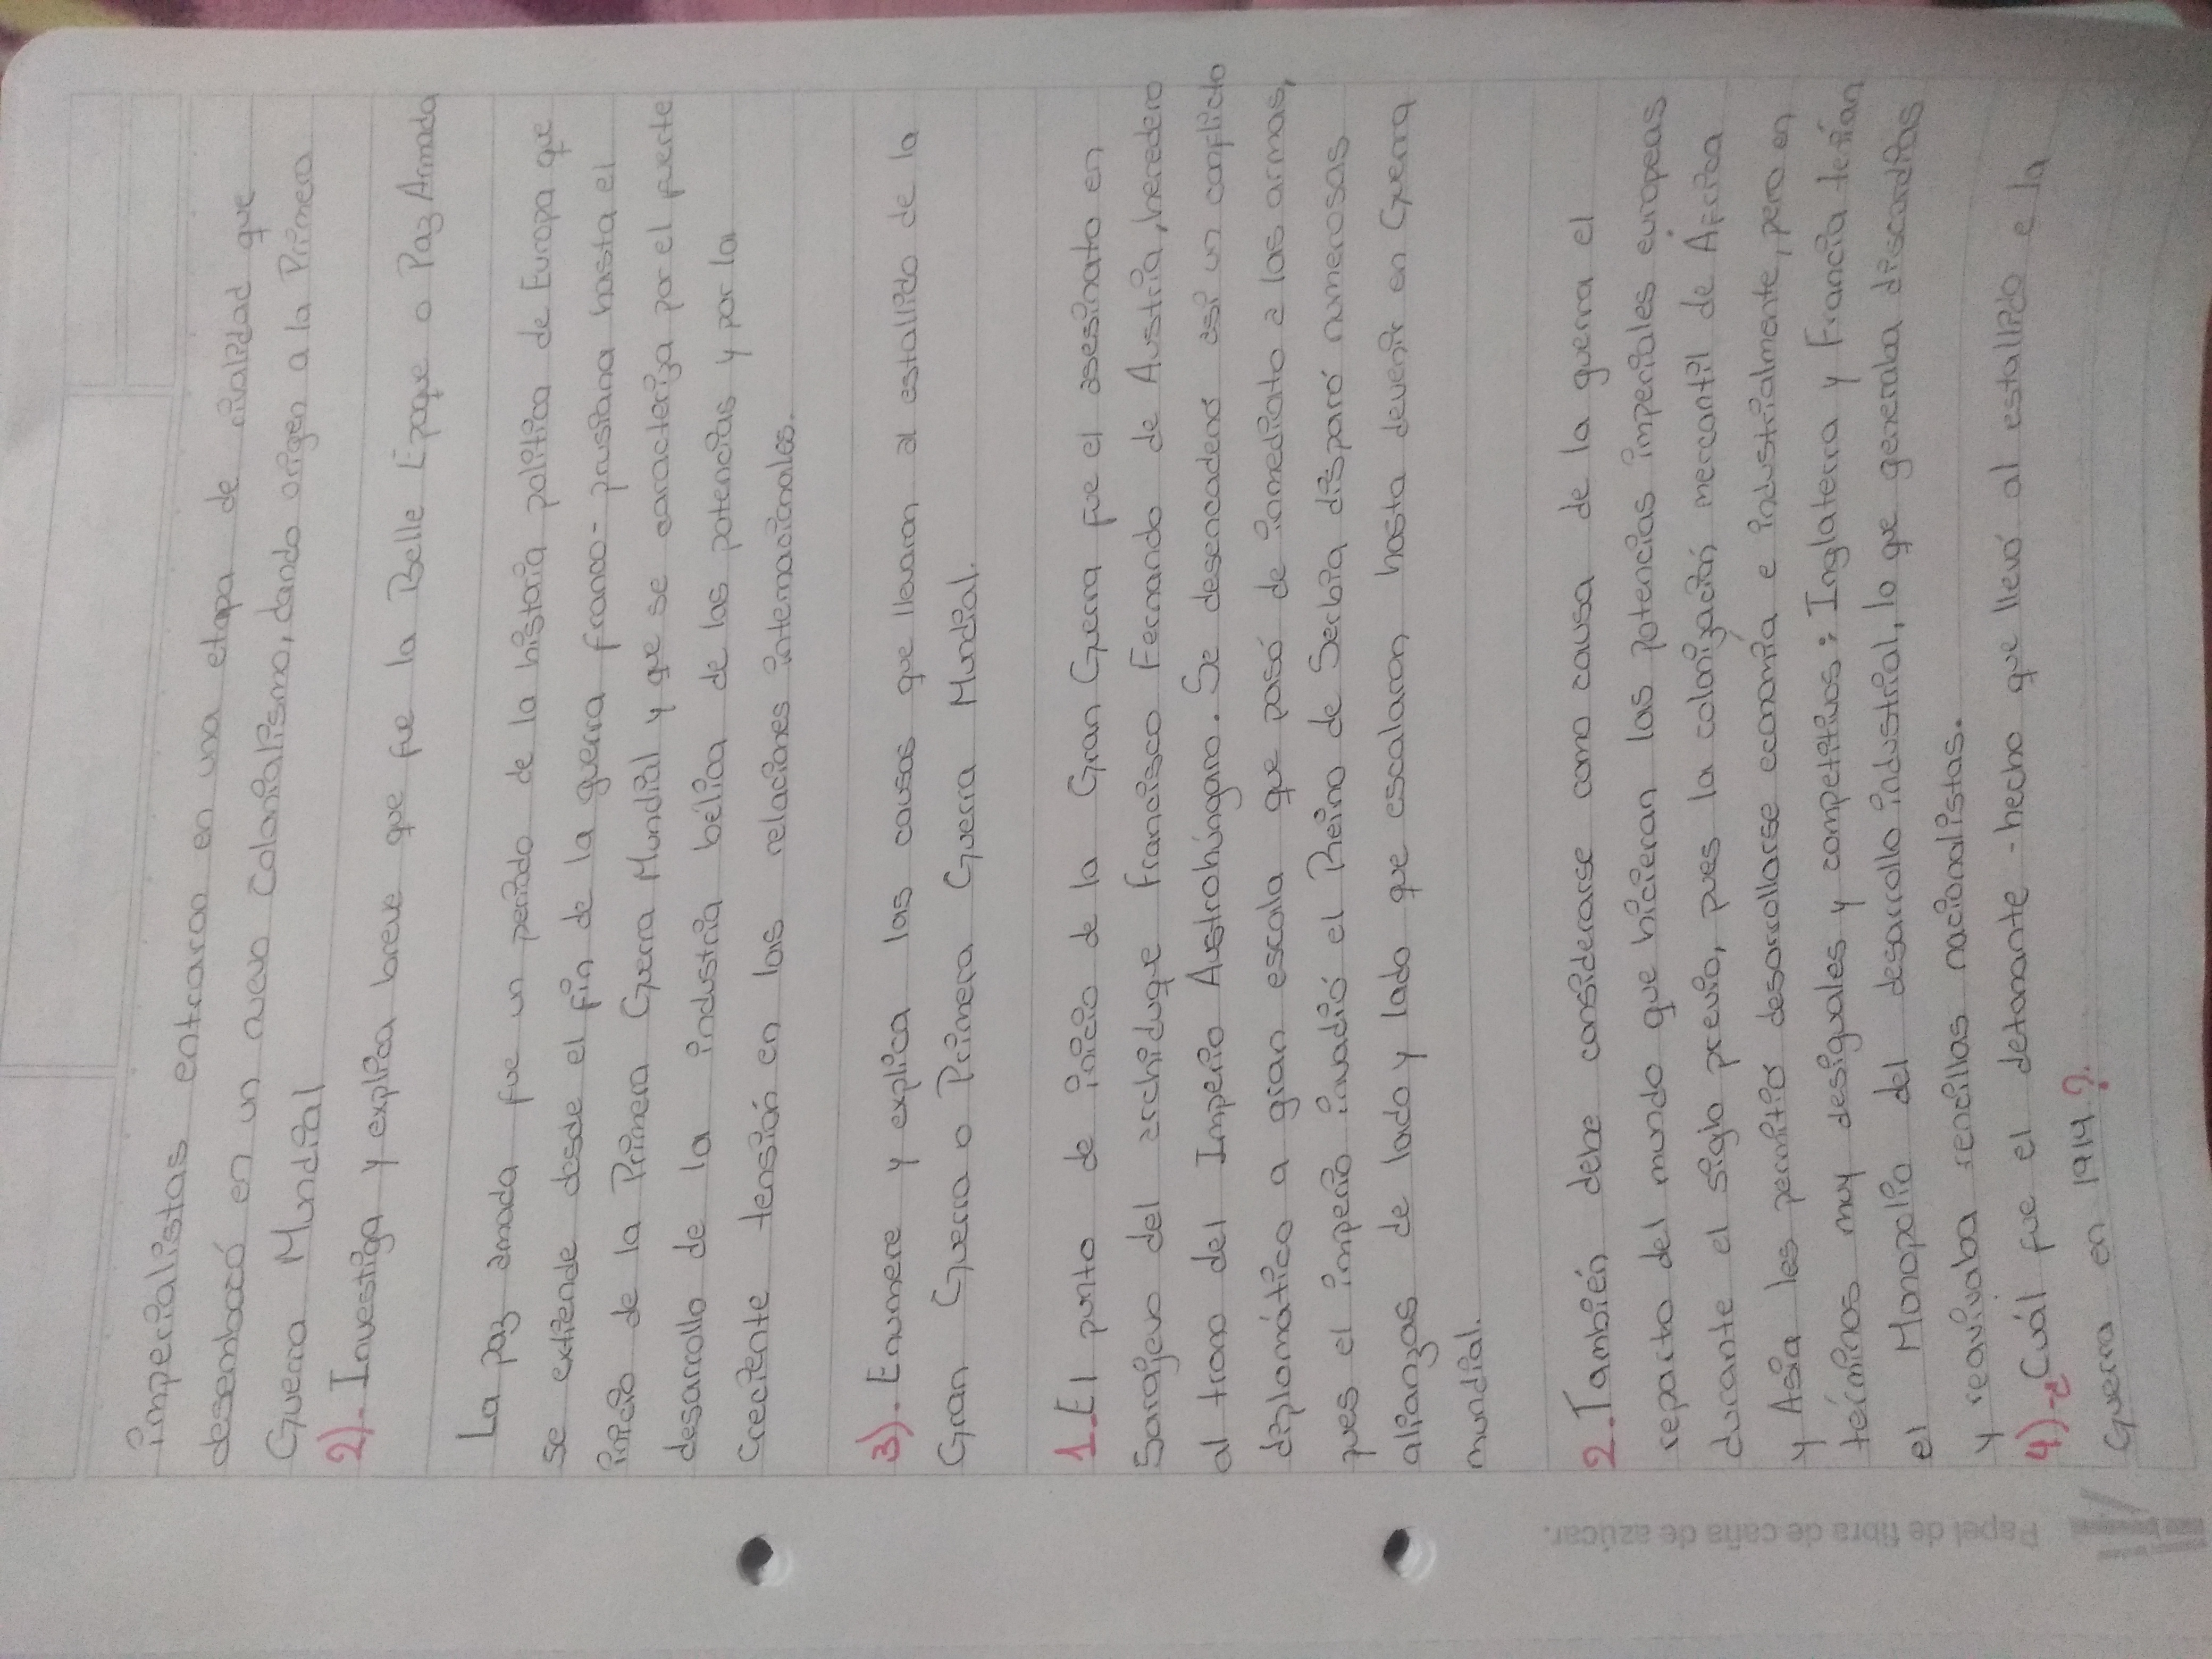 imperialistas entraron en una etapa de rivalidad que
desembocó en un nuevo Colonialismo, dando origen a la Primera
Guerra Mundial
2).- Investiga y explica breve que fue la Belle Epoque o Paz Armada
La paz armada fue un período de la historia política de Europa que
se extiende desde el fin de la guerra franco- prusiana hasta el
inicio de la Primera Guerra Mundial y que se caracteriza por el fuerte
desarrollo de la industria bélica de las potencias y por la
creciente tensión en las relaciones internacionales.
3).- Enumere y explica las causas que llevaron al estallido de la
Gran Guerra o Primera Guerra Mundial.
1.-El punto de inicio de la Gran Guerra fue el asesinato en
Sarajevo del archiduque Francisco Fernando de Austria, heredero
al trono del Imperio Austrohúngaro. Se desencadenó así un conflicto
diplomático a gran escala que pasó de inmediato a las armas,
pues el imperio invadió el Rheino de Serbia disparó numerosas
alianzas de lado y lado que escalaron hasta devenir en Guerra
mundial.
2.-También debe considerarse como causa de la guerra el
reparto del mundo que hicieran las potencias imperiales europeas
durante el siglo previo, pues la colonización mercantil de África
y Asia les permitió desarrollarse economía e industrialmente, pero en
términos muy desiguales y competitivos: Inglaterra y Francia tenían
el Monopolio del desarrollo industrial, lo que generaba discordias
y reavivaba rencillas nacionalistas.
4)-¿Cuál fue el detonante -hecho que llevó al estallido e la
Guerra en 1914?
Papel de fibra de caña de azúcar.